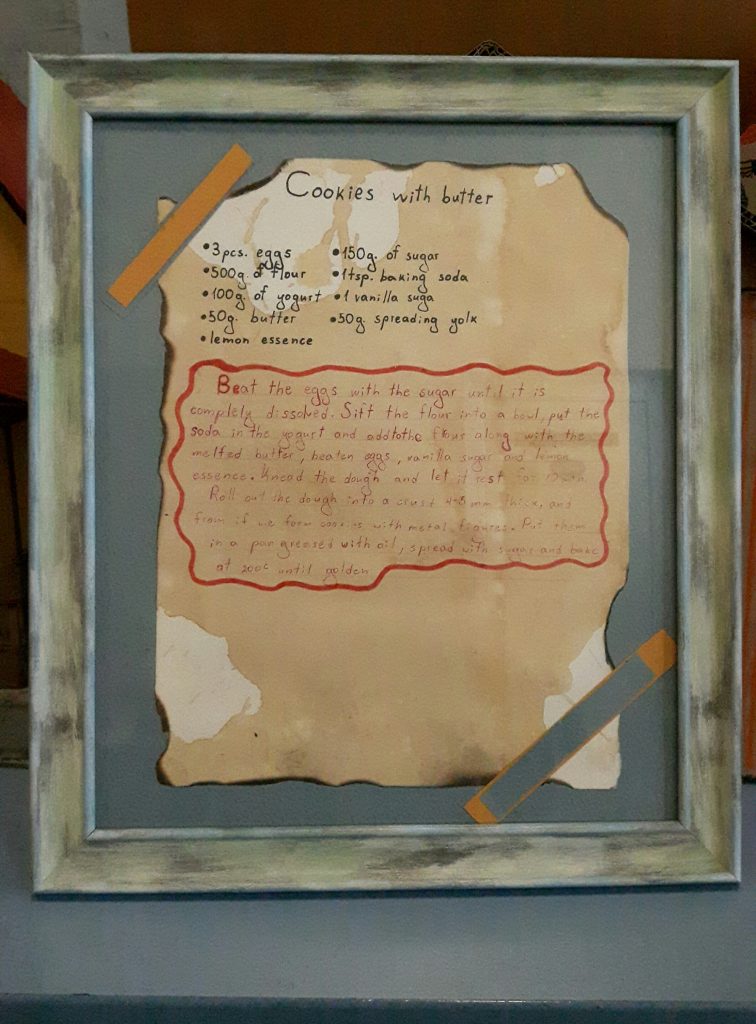 Cookies with butter
•3pcs. eggs
•500g. of flour
•100g. of yogurt
•50g. butter
•lemon essence
•150g. of sugar
•1tsp. baking soda
•1 vanilla suga
•50g. spreading yolk
Beat the eggs with the sugar until it is
complely dissolved. Sift the flour into a bowl, put the
soda in the yogurt and add to the flour along with the
melted butter, beaten eggs, vanilla sugar and lemon
essence. Knead the dough and let it rest for
Roll out the dough into a crust mm thick, and
from if we form cookies with metal figures. Put them
in a pan greased with oil, spread with sugar and bake
at 200c until golden